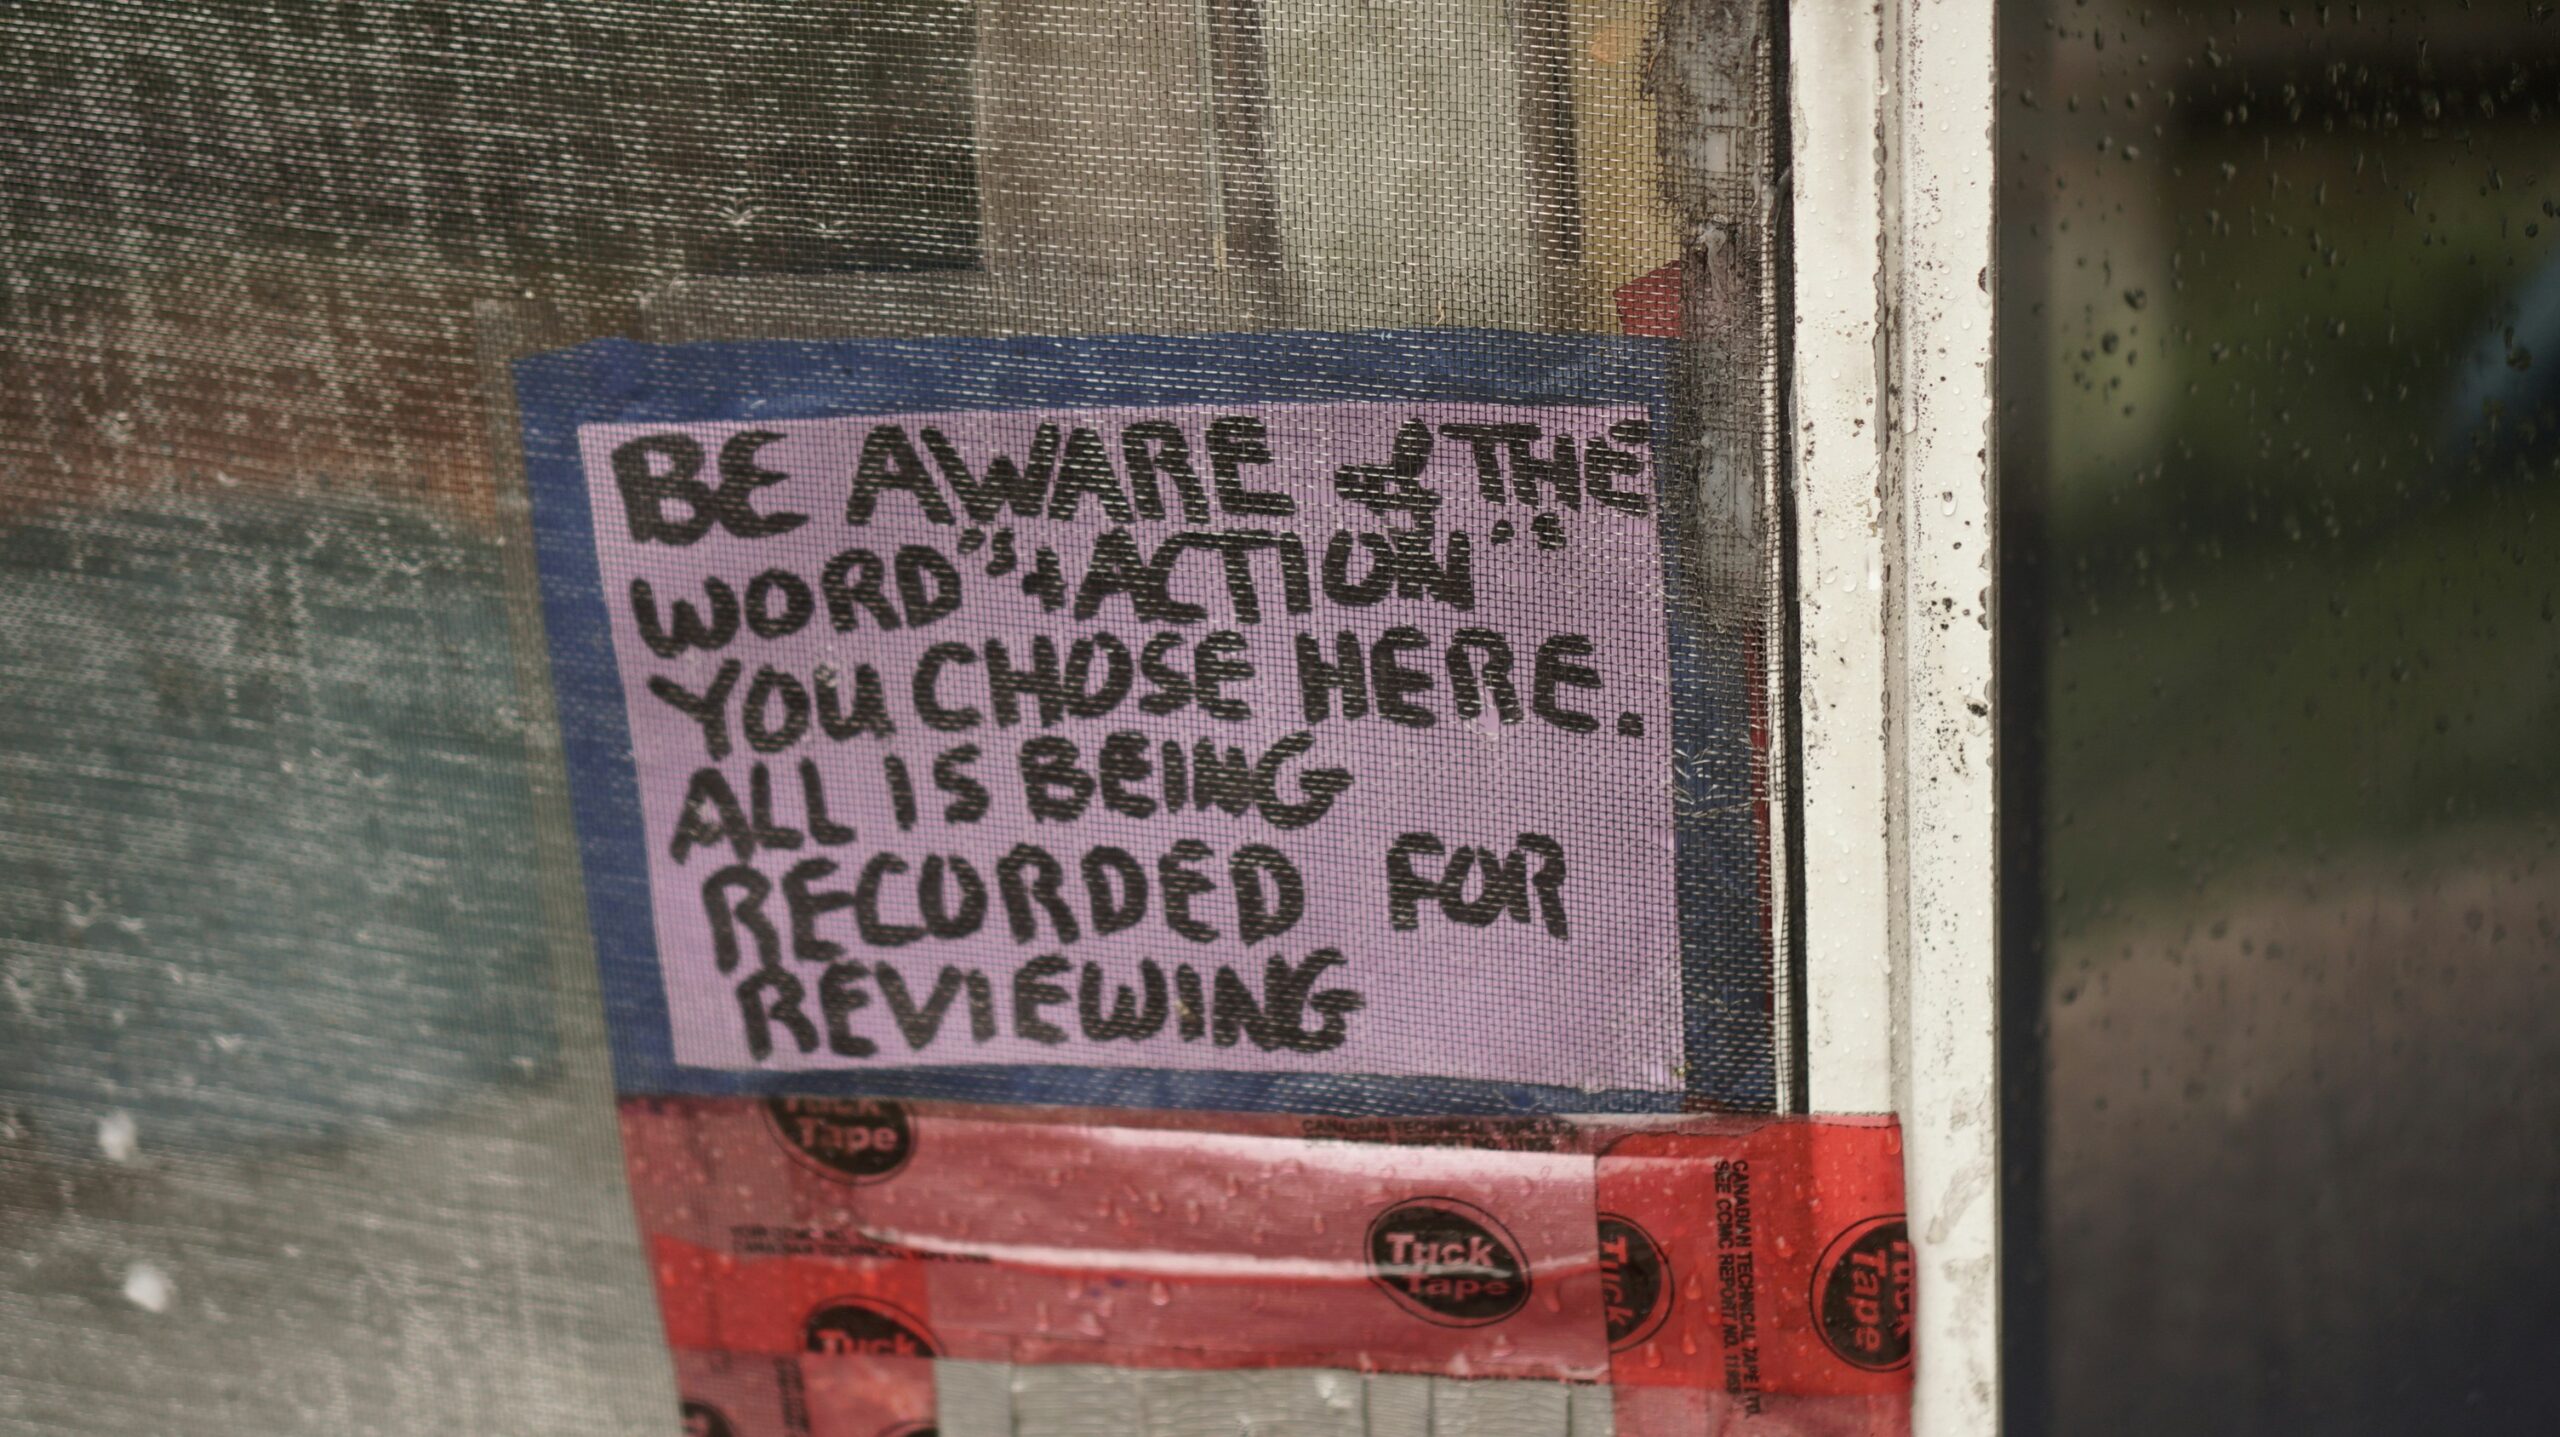 BE AWARE of THE
WORD"s + ACTION"s
YOU CHOSE HERE.
ALL IS BEING
RECORDED FOR
REVIEWING
Tuck
Tape
CANADIAN TECHNICAL TAPE LTD.
Tuck
Tape
Tuck
CANADIAN TECHNICAL TAPE LTD.
SEE CCMC REPORT NO. 11968
Tuck
Tape
Tuck